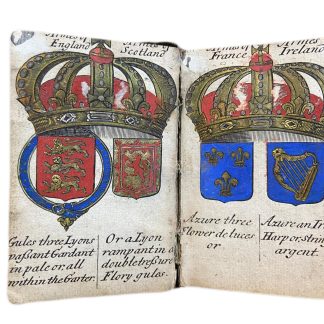 Armes of
England
Armes of
Scotland
Gules three Lyons
passant Gardant
in pale or, all
within the Garter.
Or a Lyon
rampant in a
double treßure
Flory gules.
Armes of
France
Armes
Ireland
Azure three
Flower de luces
or
Azure an Ir
Harp or, strin
argent.